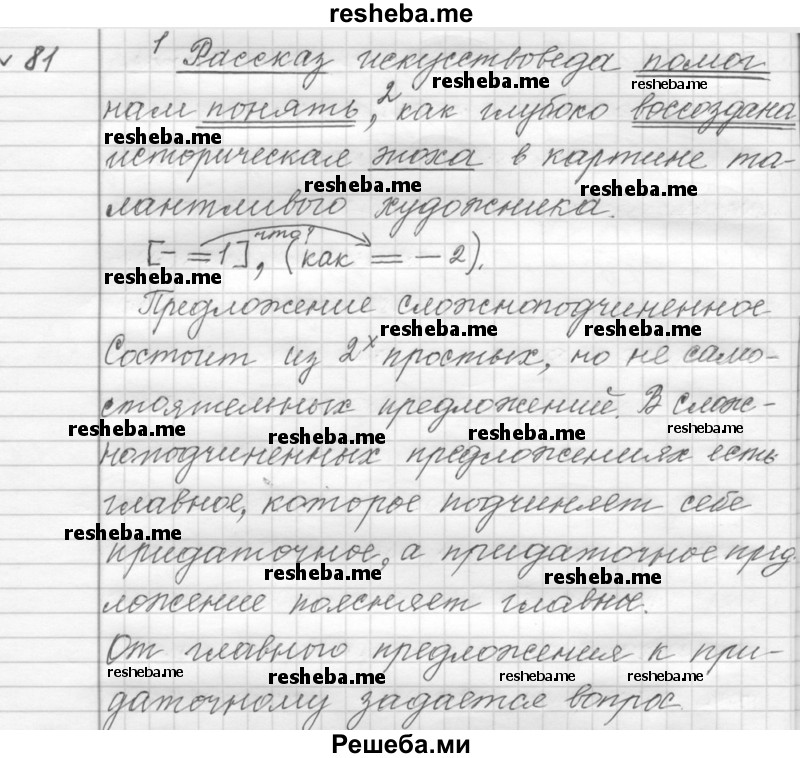 resheba.me
№ 81 ¹ Рассказ искусствоведа помог
resheba.me resheba.me
нам понять, ² как глубоко воссоздана
resheba.me
историческая эпоха в картине та-
resheba.me resheba.me
лантливого художника.
[– = 1], что? (как = – 2).
resheba.me
Предложение сложноподчиненное
resheba.me resheba.me
Состоит из 2х простых, но не само-
стоятельных предложений. В слож-
resheba.me resheba.me resheba.me resheba.me
ноподчиненных предложениях есть
главное, которое подчиняет себе
resheba.me
придаточное, а придаточное пред
resheba.me resheba.me
ложение поясняет главное.
От главного предложения к при-
resheba.me resheba.me resheba.me resheba.me
даточному задается вопрос.
Решеба.ми